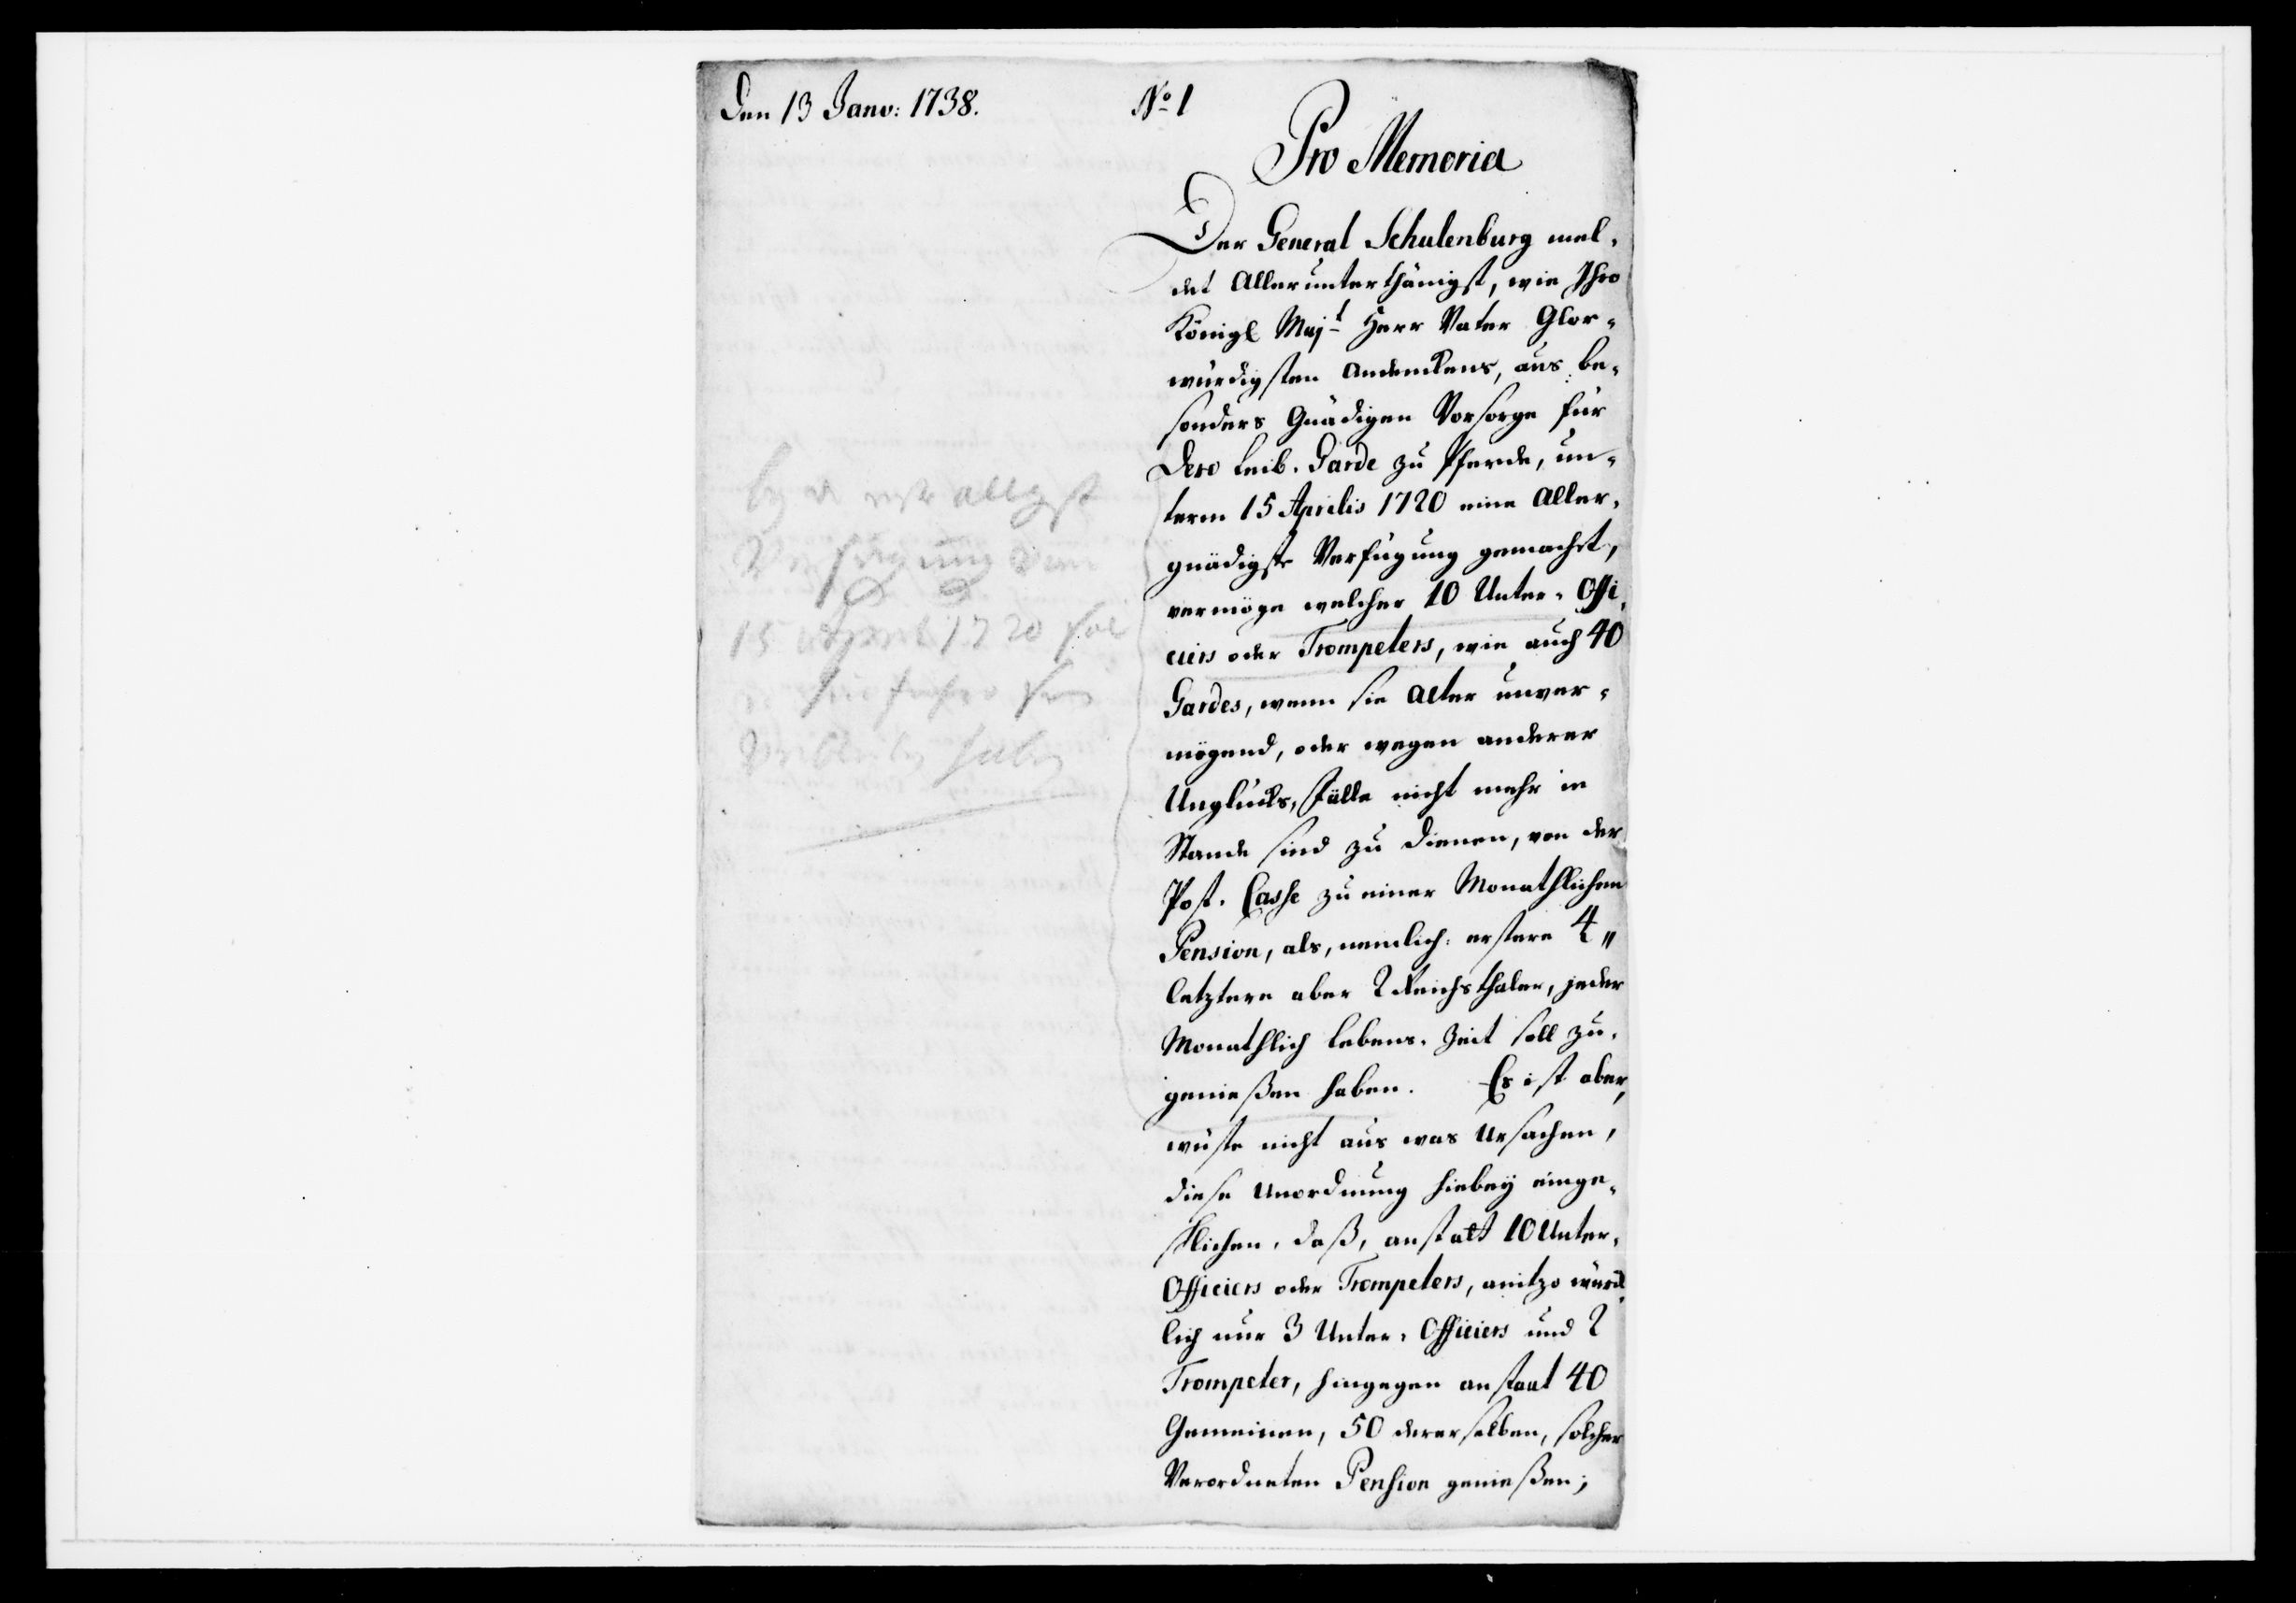 Den 13 Janv: 1738.
No 1
Pro Memoria
Der General Schulenburg mel-
det Allerunterthänigst, wie Ihro
Königl Majt Herr Vater Glor-
würdigsten Andenckens, aus be-
sonders Gnädigen Vorsorge für
Dero Leib-Garde zu Pferde, un-
term 15 Aprilis 1720 eine Aller-
gnädigste Verfügung gemacht,
vermöge welcher 10 Unter-Offi-
ciers oder Trompeters, wie auch 40
Gardes, wenn sie Alter unver-
mögend, oder wegen anderer
Unglücks-Fälle nicht mehr in
Stande sind zu dienen, von der
Post-Casse zu einer Monathlichen
Pension, als, nemlich: erstere 4 "
letztere aber 2 Reichsthaler, jeder
Monathlich Lebens-Zeit soll zu
genießen haben. Es ist aber,
wüste nicht aus was Ursachen,
diese Unordnung hiebey einge-
schlichen, daß, anstatt 10 Unter-
Officiers oder Trompeters, anitzo würck-
lich nur 3 Unter-Officiers und 2
Trompeter, hingegen anstaat 40
Gemeinen, 50 dererselben, solcher
Verordneten Pension genießen;
bey allergst
Verfügung vom
15 April 1720 soll
es
Verbleiben haben